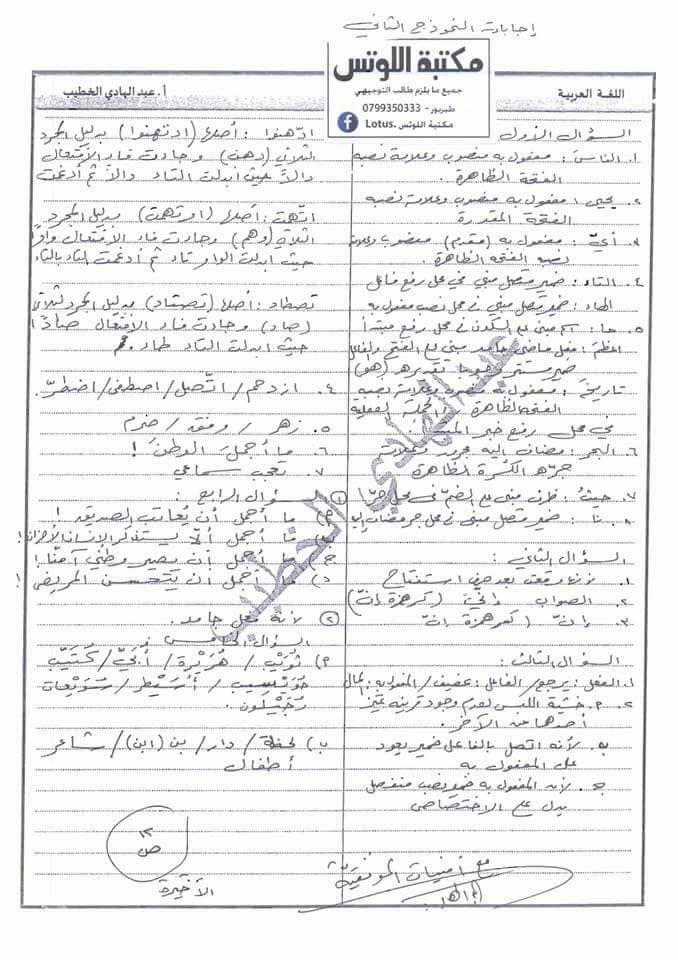 إجابات النموذج الثاني
مكتبة اللوتس
جميع ما يلزم طالب التوجيهي
طبربور - 0799350333
مكتبة اللوتس .Lotus
اللغة العربية
أ. عبد الهادي الخطيب
السؤال الأول
١. الناسَ: مفعول به منصوب وعلامة نصبه
الفتحة الظاهرة.
٢. يحيى: مفعول به منصوب وعلامة نصبه
الفتحة المقدرة
٣. أيَّ: مفعول به (مقدم) منصوب وعلامة
نصبه الفتحة الظاهرة.
٤. التاء: ضمير متصل مبني في محل رفع فاعل
الهاء: ضمير متصل مبني في محل نصب مفعول به
٥. ما: اسم مبني على السكون في محل رفع مبتدأ
أعظمَ: فعل ماضي جامد مبني على الفتح والفاعل
ضمير مستتر وجوبا تقديره (هو)
تاريخَ: مفعول به منصوب وعلامة نصبه
الفتحة الظاهرة / الجملة الفعلية
في محل رفع خبر المبتدأ.
٦. البحرِ: مضاف إليه مجرور وعلامة
جره الكسرة الظاهرة
٧. حيثُ: ظرف مبني على الضم في محل جر
٨. نا: ضمير متصل مبني في محل جر مضاف إليه
السؤال الثاني
١. لأنها وقعت بعد حرفي استفتاح
٢. الصواب وإنّي (كسر همزة إنّ)
٣. إنّ (كسر همزة إنّ)
السؤال الثالث:
١. الفعل: يرجع / الفاعل: عفيف / المفعول به: المال
٢. أ. خشية اللبس لعدم وجود قرينة تميز
أحدهما عن الآخر.
ب. لأنه اتصل بالفاعل ضمير يعود
على المفعول به
ج. لأن المفعول به ضمير نصب منفصل
يدل على الاختصاص
ادّهنوا: أصلها (ادتهنوا) بدليل المجرد
الثلاثي (دهن) وجاءت فاء الافتعال
دالاً حيث أبدلت التاء دالاً ثم أدغمت
اتّهمت: أصلها (اوتهمت) بدليل المجرد
الثلاثي (وهم) وجاءت فاء الافتعال واوًا
حيث أبدلت الواو تاء ثم أدغمت التاء بالتاء
تصطاد: أصلها (تصتاد) بدليل المجرد الثلاثي
(صاد) وجاءت فاء الافتعال صادًا
حيث أبدلت التاء طاء
٤. ازدحم / اتّصل / اصطفى / اضطرّ.
٥. زهر / وفق / ضرم
٦. ما أجملَ الوطنَ!
٧. تعجب سماعي
السؤال الرابع:
١) أ) ما أجمل أن يُعاتب الصديق!
ب) ما أجمل ألا يستذكر الإنسان الأحزان!
ج) ما أجمل أن يصير وطني آمنًا!
د) ما أجمل أن يتحسن المريض!
٢) لأنه فعل جامد.
السؤال الخامس
أ) ثُوَيْب / هُرَيْرة / أُبَيّ / كُتَيّب
حُوَيْسيب / أُسَيْطر / شُوَيْعرات
رُجَيْلون.
ب) لحظة / دار / بن (ابن) / شاعر
أطفال
مع أمنيات الموفقية
١٢
ص
الأخيرة
عبد الهادي الخطيب